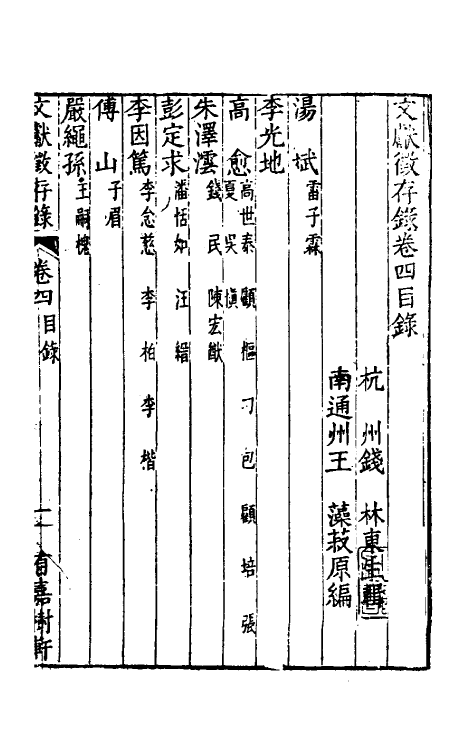 文獻徵存錄卷四目錄
杭州錢林東生輯
南通州王藻菽原編
湯斌 雷子霖
李光地
高愈 高世泰 顧樞 刁包 顧培 張
夏 吳慎
朱澤澐 錢民 陳宏猷
彭定求 潘恬如 汪縉
李因篤 李念慈 李柏 李楷
傅山 子眉
嚴繩孫 王嗣槐
文獻徵存錄 卷四目錄 一 有嘉樹軒